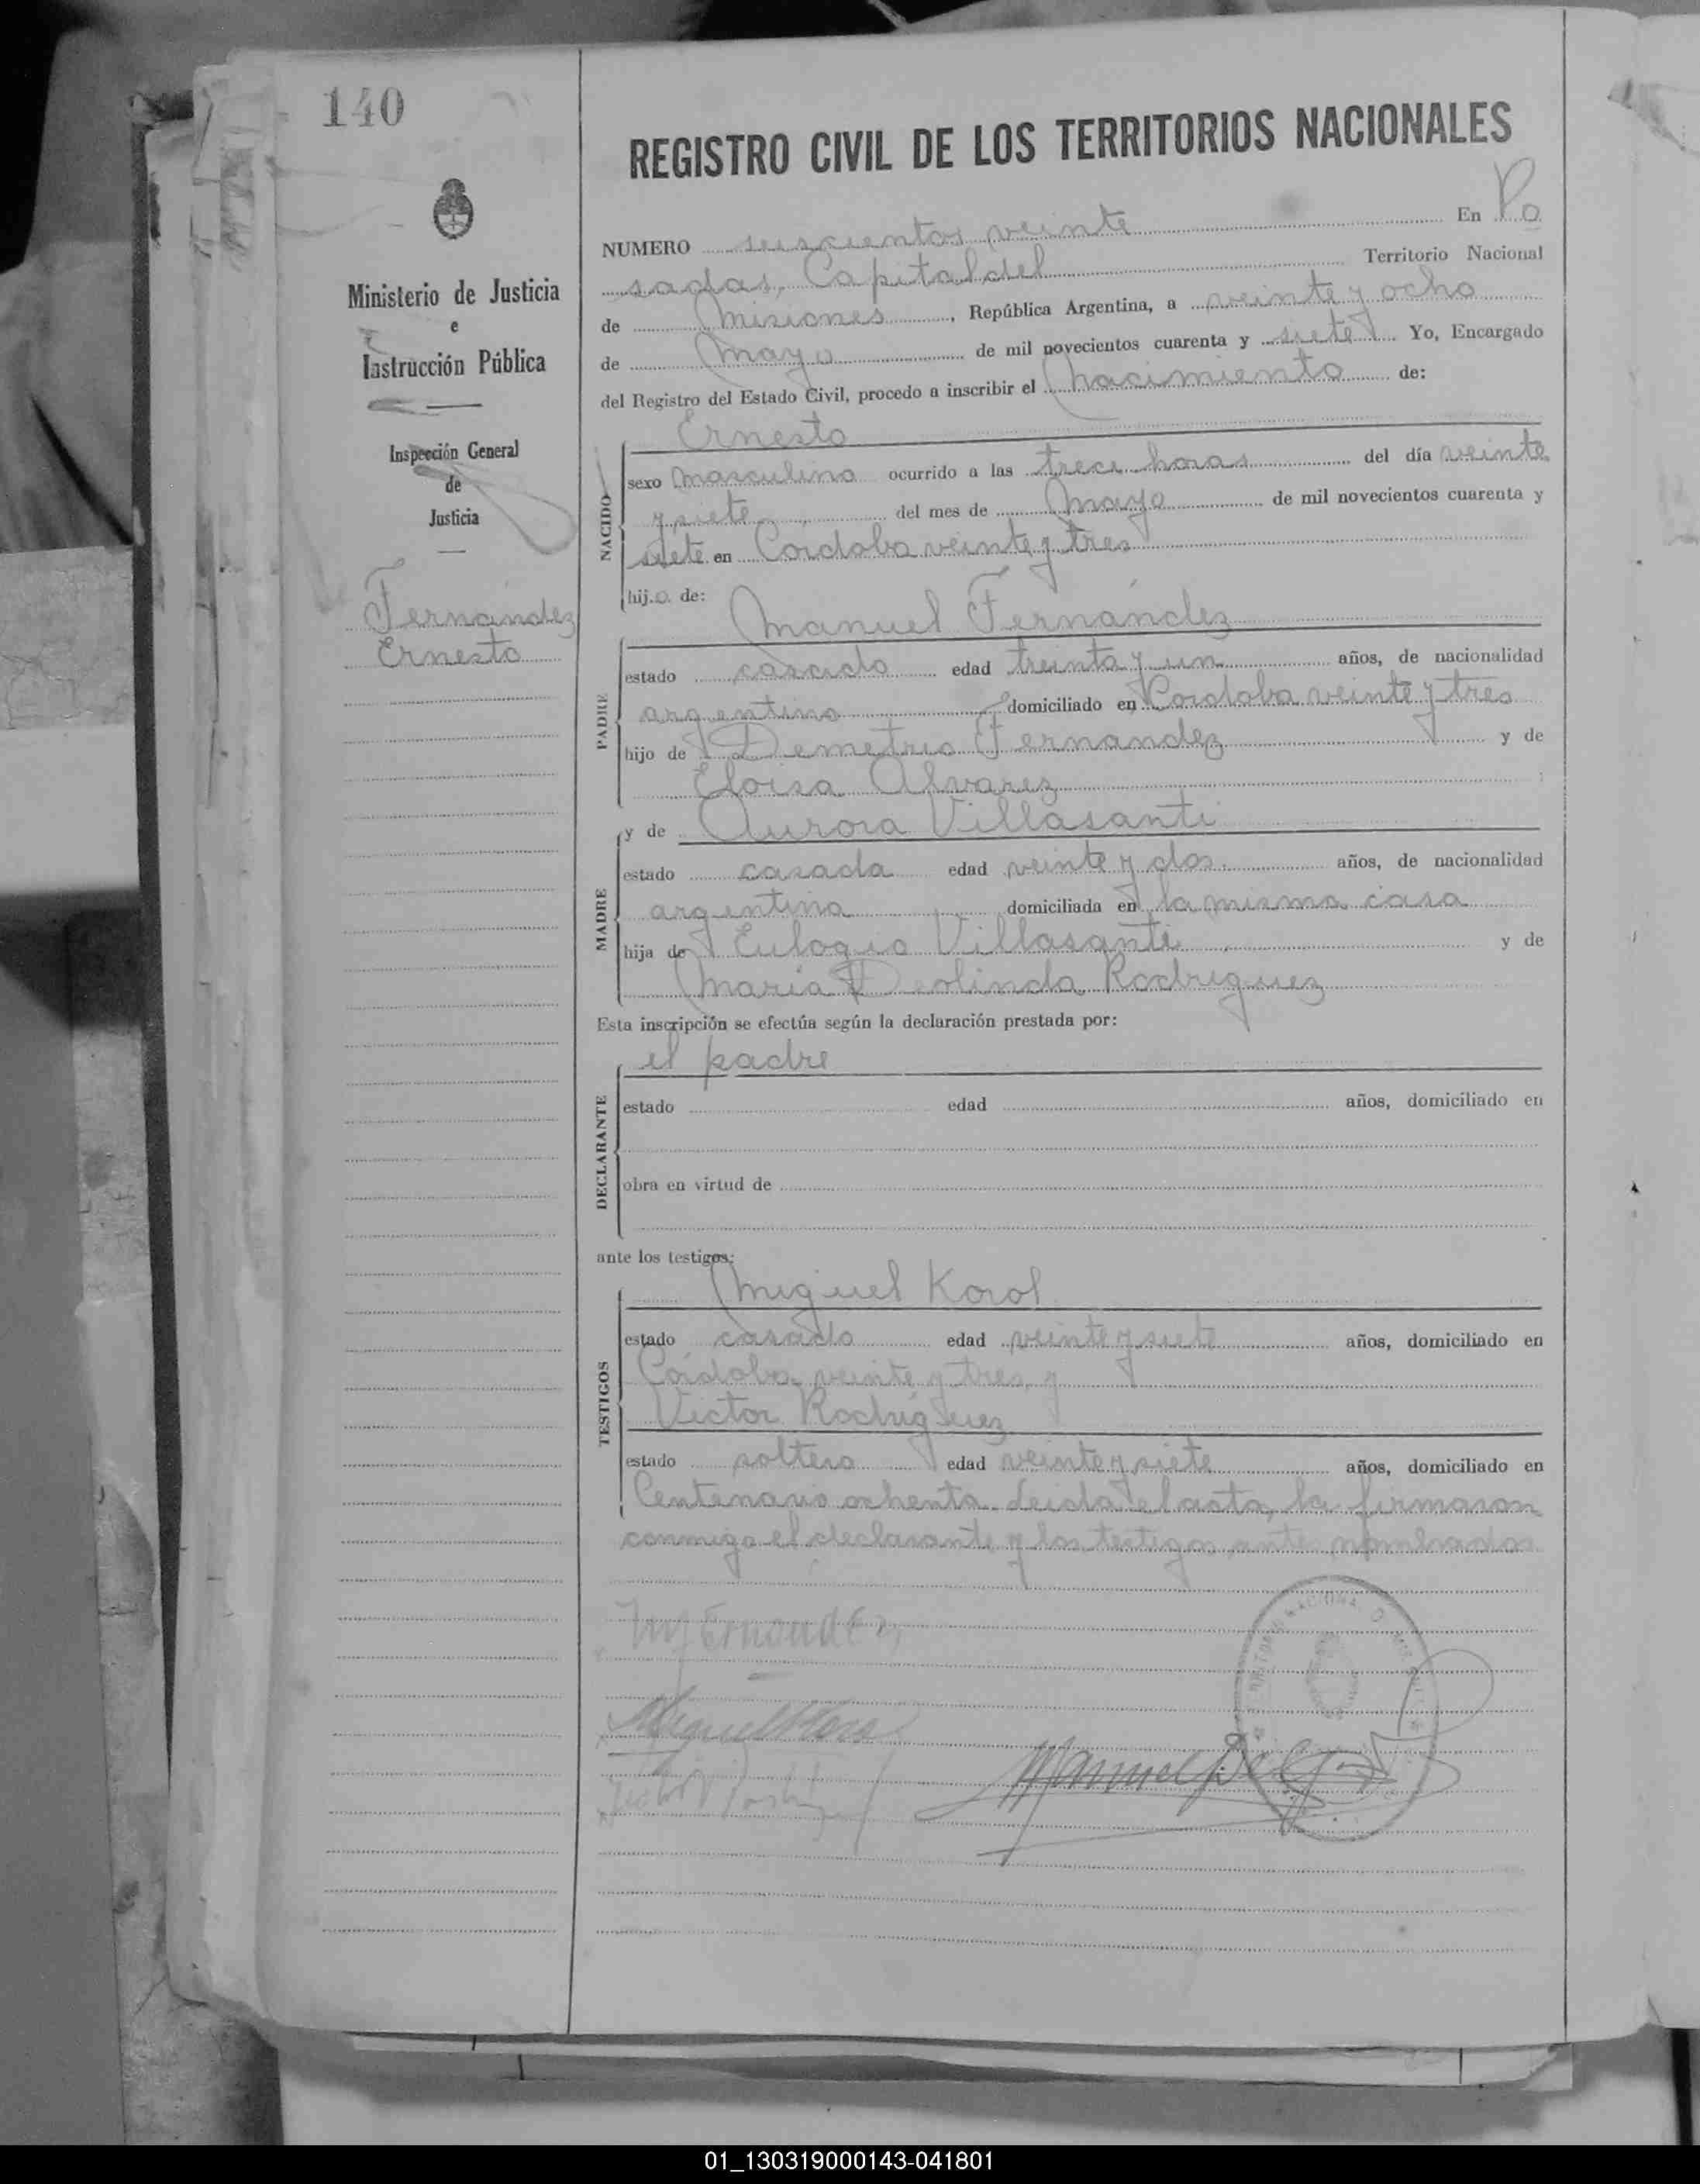 140
REGISTRO CIVIL DE LOS TERRITORIOS NACIONALES
Ministerio de Justicia
e
Instrucción Pública
Inspección General
de
Justicia
Fernández
Ernesto
NUMERO seiscientos veinte En Po
sadas, Capital del Territorio Nacional
de Misiones, República Argentina, a veinte y ocho
de Mayo de mil novecientos cuarenta y siete Yo, Encargado
del Registro del Estado Civil, procedo a inscribir el nacimiento de:
NACIDO
Ernesto
sexo masculino ocurrido a las trece horas del día veinte
y siete del mes de Mayo de mil novecientos cuarenta y
siete en Córdoba veinte y tres
hijo de:
Manuel Fernández
PADRE
estado casado edad treinta y un años, de nacionalidad
argentino domiciliado en Cordoba veinte y tres
hijo de Demetrio Fernandez y de
Eloisa Alvarez
MADRE
y de Aurora Villasanti
estado casada edad veinte y dos años, de nacionalidad
argentina domiciliada en la misma casa
hija de Eulogio Villasanti y de
María Deolinda Rodriguez
Esta inscripción se efectúa según la declaración prestada por:
DECLARANTE
el padre
estado edad años, domiciliado en
obra en virtud de
ante los testigos:
TESTIGOS
Miguel Korol
estado casado edad veinte y siete años, domiciliado en
Córdoba veinte y tres, y
Victor Rodriguez
estado soltero edad veinte y siete años, domiciliado en
Centenario ochenta. Leida el acta, la firmaron
conmigo el declarante y los testigos antes nombrados
MFernandez
01_130319000143-041801